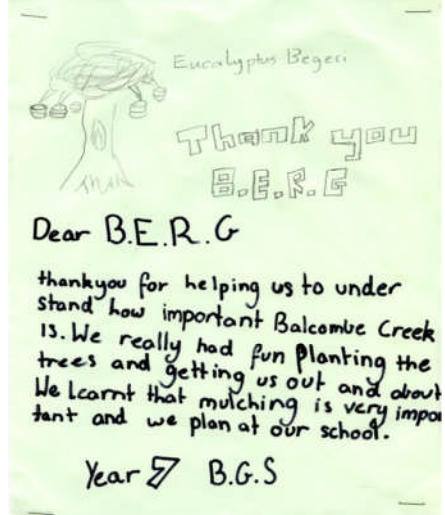 Eucalyptus Begeri
Thank you
B.E.R.G
Dear B.E.R.G
thankyou for helping us to under
stand how important Balcombe Creek
is. We really had fun Planting the
trees and getting us out and about
We learnt that mulching is very impor
tant and we plan at our school.
Year 7 B.G.S